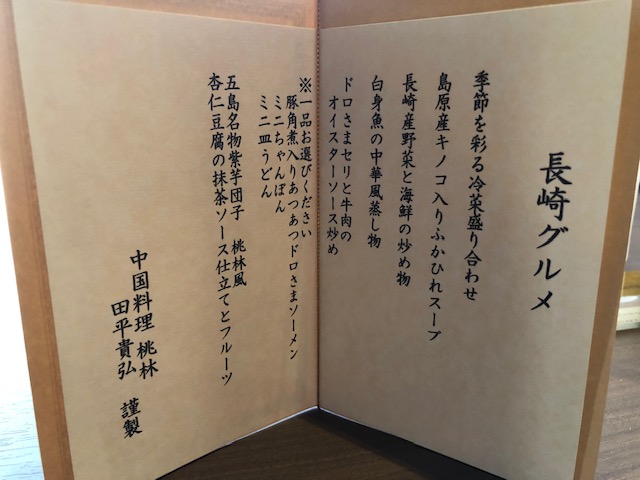 長崎グルメ
季節を彩る冷菜盛り合わせ
島原産キノコ入りふかひれスープ
長崎産野菜と海鮮の炒め物
白身魚の中華風蒸し物
ドロさまセリと牛肉の
オイスターソース炒め
※一品お選びください
豚角煮入りあつあつドロさまソーメン
ミニちゃんぽん
ミニ皿うどん
五島名物紫芋団子 桃林風
杏仁豆腐の抹茶ソース仕立てとフルーツ
中国料理 桃林
田平貴弘 謹製